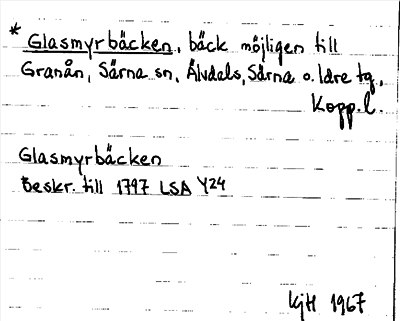 * Glasmyrbäcken, bäck möjligen till
Granån, Särna sn, Älvdals, Särna o. Idre tg.,
Kopp. l.
Glasmyrbäcken
Beskr. till 1797 LSA Y24
KjH 1967